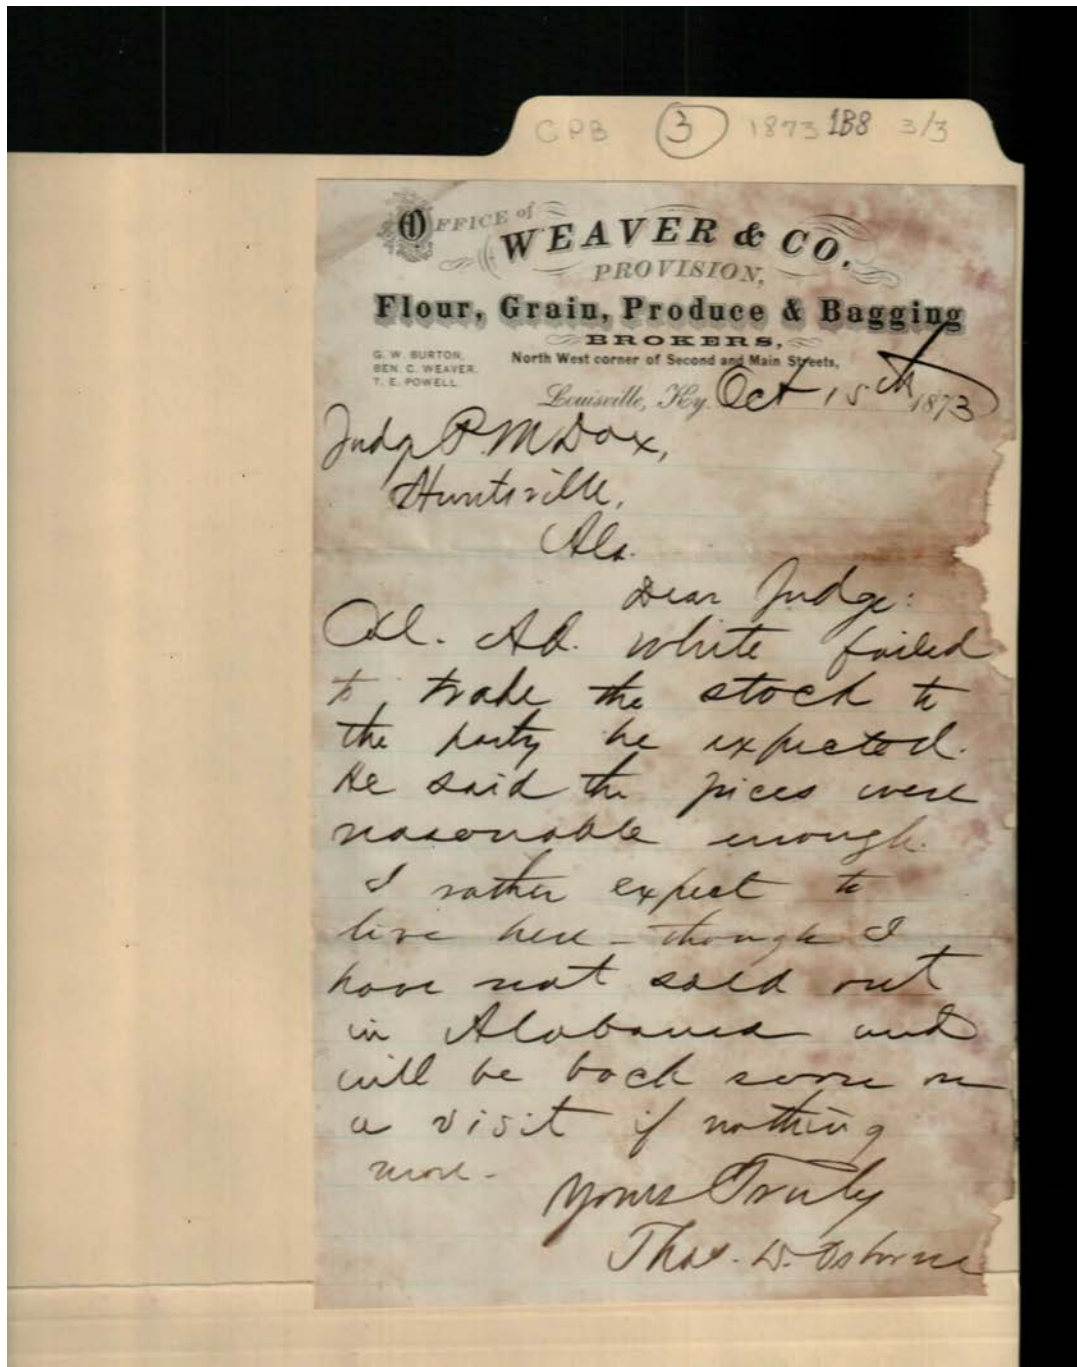 CPB (3) 1873 1B8 3/3
OFFICE of
WEAVER & CO.
PROVISION,
Flour, Grain, Produce & Bagging
BROKERS,
G. W. BURTON,
BEN. C. WEAVER.
T. E. POWELL.
North West corner of Second and Main Streets,
Louisville, Ky. Oct 15th 1873
Judge P. M Dox,
Huntsville,
Ala.
Dear Judge:
Col. Ad. White failed
to trade the stock to
the party he expected.
He said the prices were
reasonable enough.
I rather expect to
live here - though I
have not sold out
in Alabama and
will be back soon on
a visit if nothing
more -
Yours Truly
Thos. D. Osborne